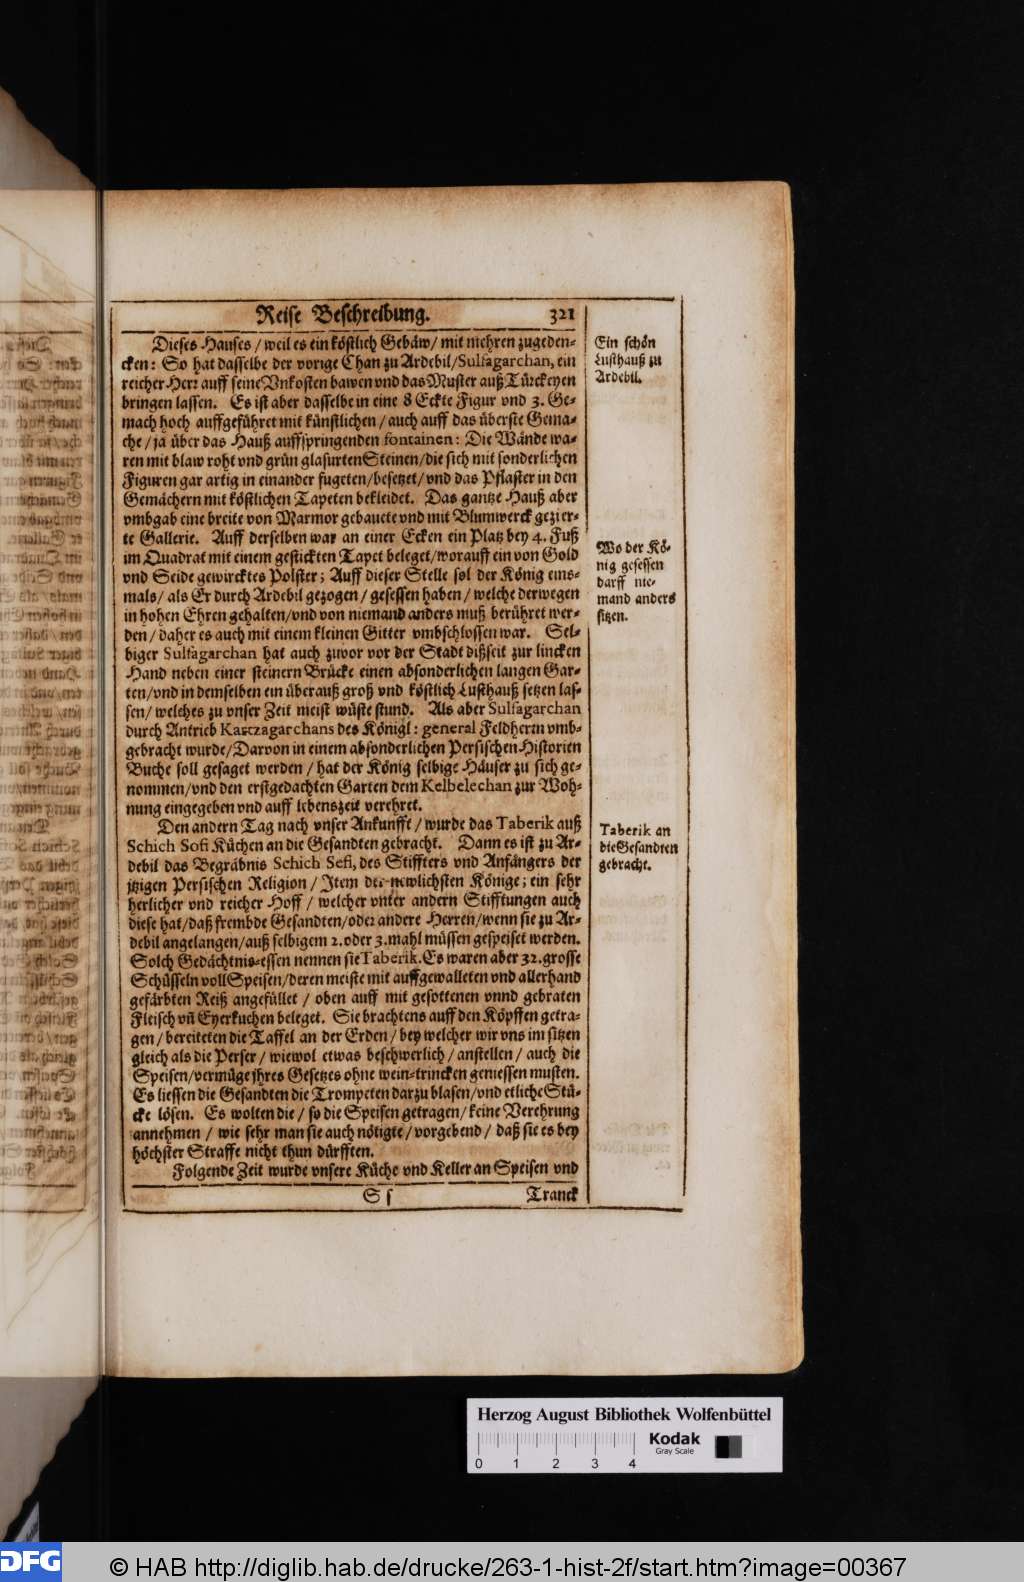 Reise Beschreibung. 321
Dieses Hauses / weil es ein köstlich Gebäw / mit mehren zugeden-
cken: So hat dasselbe der vorige Chan zu Ardebil / Sulfagarchan, ein
reicher Herr auff seine Vnkosten bawen vnd das Muster auß Türckeyen
bringen lassen. Es ist aber dasselbe in eine 8 Eckte Figur vnd 3. Ge-
mach hoch auffgeführet mit künstlichen / auch auff das überste Gema-
che / ja über das Hauß auffspringenden fontainen: Die Wände wa-
ren mit blaw roht vnd grün glasurten Steinen / die sich mit sonderlichen
Figuren gar artig in einander fugeten / besetzet / vnd das Pflaster in den
Gemächern mit köstlichen Tapeten bekleidet. Das gantze Hauß aber
vmbgab eine breite von Marmor gebauete vnd mit Blumwerck gezier-
te Gallerie. Auff derselben war an einer Ecken ein Platz bey 4. Fuß
im Quadrat mit einem gestickten Tapet beleget / worauff ein von Gold
vnd Seide gewircktes Polster; Auff dieser Stelle sol der König eins-
mals / als Er durch Ardebil gezogen / gesessen haben / welche derwegen
in hohen Ehren gehalten / vnd von niemand anders muß berühret wer-
den / daher es auch mit einem kleinen Gitter vmbschlossen war. Sel-
biger Sulfagarchan hat auch zuvor vor der Stadt dißseit zur lincken
Hand neben einer steinern Brücke einen absonderlichen langen Gar-
ten / vnd in demselben ein überauß groß vnd köstlich Lusthauß setzen las-
sen / welches zu vnser Zeit meist wüste stund. Als aber Sulfagarchan
durch Antrieb Karczagarchans des Königl: general Feldherrn vmb-
gebracht wurde / Darvon in einem absonderlichen Persischen Historien
Buche soll gesaget werden / hat der König selbige Häuser zu sich ge-
nommen / vnd den erstgedachten Garten dem Kelbelechan zur Woh-
nung eingegeben vnd auff lebenszeit verehret.
Den andern Tag nach vnser Ankunfft / wurde das Taberik auß
Schich Sofi Küchen an die Gesandten gebracht. Dann es ist zu Ar-
debil das Begräbnis Schich Sefi, des Stiffters vnd Anfängers der
jtzigen Persischen Religion / Item der newlichsten Könige; ein sehr
herlicher vnd reicher Hoff / welcher vnter andern Stifftungen auch
diese hat / daß frembde Gesandten / oder andere Herren / wenn sie zu Ar-
debil angelangen / auß selbigem 2. oder 3. mahl müssen gespeiset werden.
Solch Gedächtnis-essen nennen sie Taberik. Es waren aber 32. grosse
Schüsseln voll Speisen / deren meiste mit auffgewalleten vnd allerhand
gefärbten Reiß angefüllet / oben auff mit gesottenen vnnd gebraten
Fleisch vñ Eyerkuchen beleget. Sie brachtens auff den Köpffen getra-
gen / bereiteten die Taffel an der Erden / bey welcher wir vns im sitzen
gleich als die Perser / wiewol etwas beschwerlich / anstellen / auch die
Speisen / vermüge jhres Gesetzes ohne wein-trincken geniessen musten.
Es liessen die Gesandten die Trompeten darzu blasen / vnd etliche Stü-
cke lösen. Es wolten die / so die Speisen getragen / keine Verehrung
annehmen / wie sehr man sie auch nötigte / vorgebend / daß sie es bey
höchster Straffe nicht thun dürfften.
Folgende Zeit wurde vnsere Küche vnd Keller an Speisen vnd
S s Tranck
Ein schön
Lusthauß zu
Ardebil.
Wo der Kö-
nig gesessen
darff nie-
mand anders
sitzen.
Taberik an
die Gesandten
gebracht.
Herzog August Bibliothek Wolfenbüttel
0 1 2 3 4
Kodak
Gray Scale
DFG © HAB http://diglib.hab.de/drucke/263-1-hist-2f/start.htm?image=00367